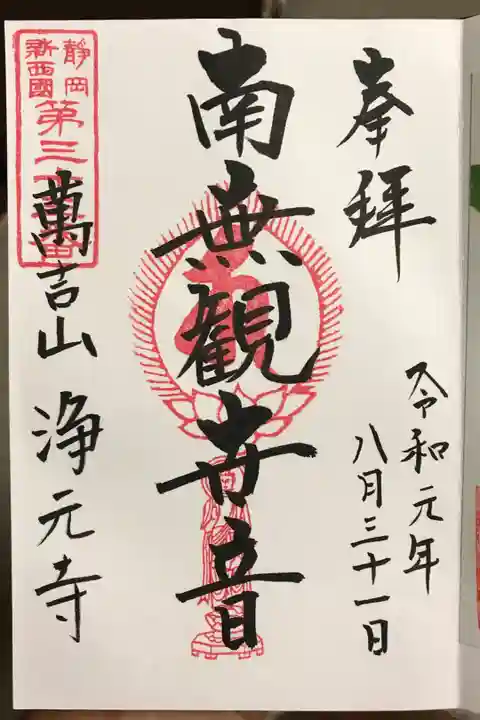 奉拝
令和元年
八月三十一日
南無観世音
静岡
新西國
第三
萬吉山 浄元寺